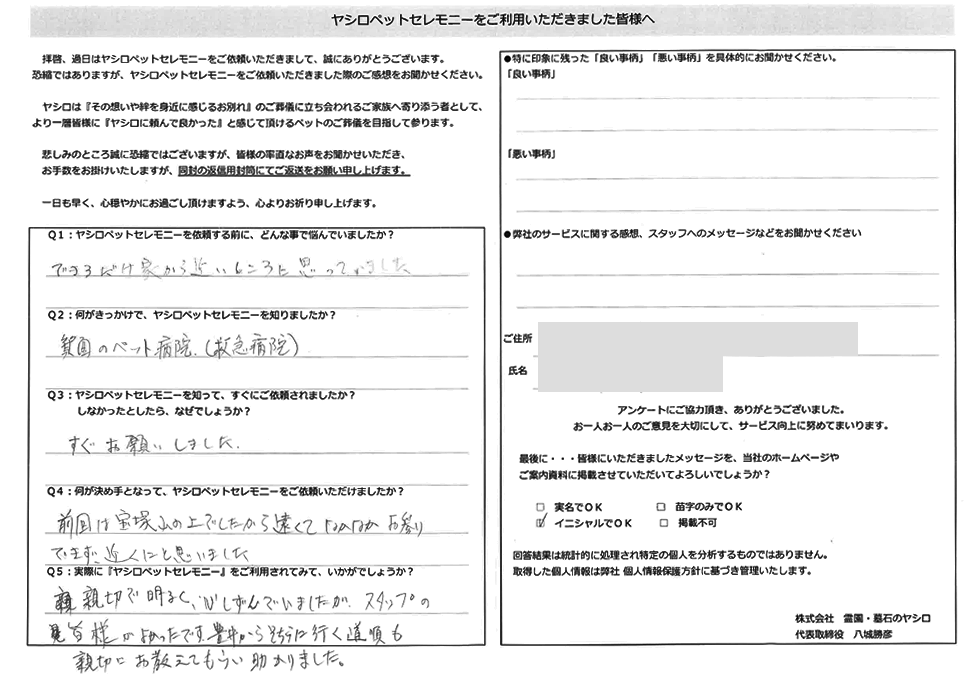 ヤシロペットセレモニーをご利用いただきました皆様へ
拝啓、過日はヤシロペットセレモニーをご依頼いただきまして、誠にありがとうございます。
恐縮ではありますが、ヤシロペットセレモニーをご依頼いただきました際のご感想をお聞かせください。
ヤシロは『その想いや絆を身近に感じるお別れ』のご葬儀に立ち会われるご家族へ寄り添う者として、
より一層皆様に『ヤシロに頼んで良かった』と感じて頂けるペットのご葬儀を目指して参ります。
悲しみのところ誠に恐縮ではございますが、皆様の率直なお声をお聞かせいただき、
お手数をお掛けいたしますが、同封の返信用封筒にてご返送をお願い申し上げます。
一日も早く、心穏やかにお過ごし頂けますよう、心よりお祈り申し上げます。
Q1：ヤシロペットセレモニーを依頼する前に、どんな事で悩んでいましたか？
できるだけ家から近いところに思っていました
Q2：何がきっかけで、ヤシロペットセレモニーを知りましたか？
箕面のペット病院.(救急病院)
Q3：ヤシロペットセレモニーを知って、すぐにご依頼されましたか？
しなかったとしたら、なぜでしょうか？
すぐお願いしました.
Q4：何が決め手となって、ヤシロペットセレモニーをご依頼いただけましたか？
前回は宝塚山の上でしたから遠くてなかなかお参り
できず、近くにと思いました
Q5：実際に『ヤシロペットセレモニー』をご利用されてみて、いかがでしょうか？
親切で明るく、心しずんでいましたが、スタッフの
皆様がよかったです。豊中からそちらに行く道順も
親切にお教えてもらい助かりました。
●特に印象に残った「良い事柄」「悪い事柄」を具体的にお聞かせください。
「良い事柄」
「悪い事柄」
●弊社のサービスに関する感想、スタッフへのメッセージなどをお聞かせください
ご住所
氏名
アンケートにご協力頂き、ありがとうございました。
お一人お一人のご意見を大切にして、サービス向上に努めてまいります。
最後に・・・皆様にいただきましたメッセージを、当社のホームページや
ご案内資料に掲載させていただいてよろしいでしょうか？
□ 実名でOK □ 苗字のみでOK
☑ イニシャルでOK □ 掲載不可
回答結果は統計的に処理され特定の個人を分析するものではありません。
取得した個人情報は弊社 個人情報保護方針に基づき管理いたします。
株式会社 霊園・墓石のヤシロ
代表取締役 八城勝彦